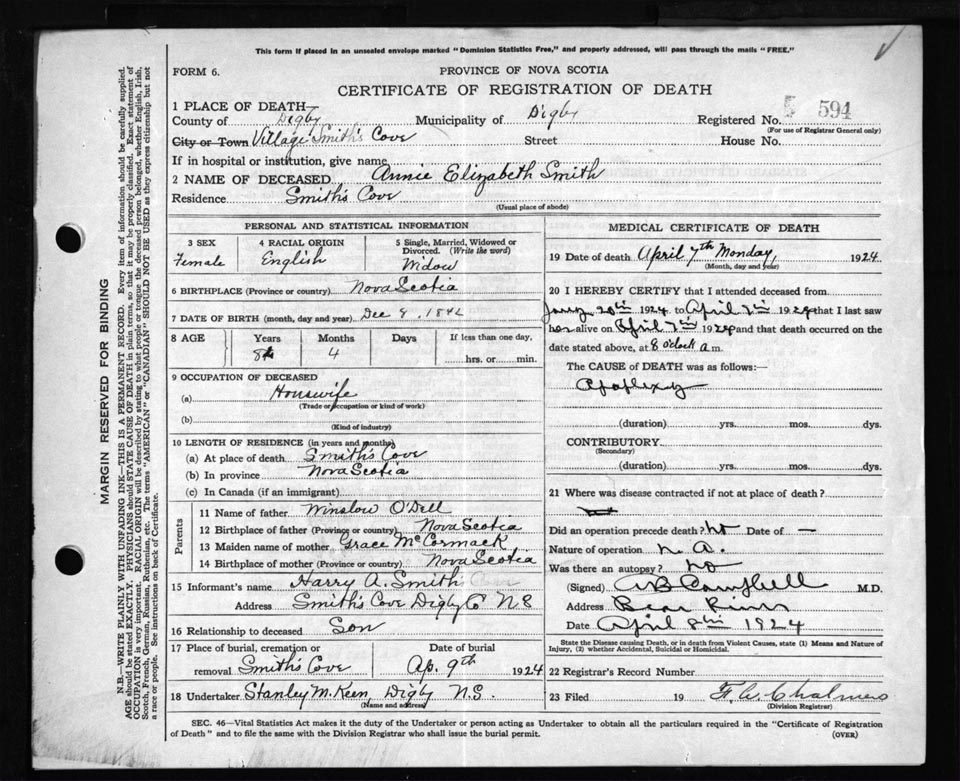 This form if placed in an unsealed envelope marked "Dominion Statistics Free," and properly addressed, will pass through the mails "FREE."
FORM 6.
PROVINCE OF NOVA SCOTIA
CERTIFICATE OF REGISTRATION OF DEATH
1 PLACE OF DEATH
County of Digby Municipality of Digby Registered No. 594
(For use of Registrar General only)
City or Town Village Smith's Cove Street House No.
If in hospital or institution, give name
2 NAME OF DECEASED Annie Elizabeth Smith
Residence Smith's Cove
(Usual place of abode)
PERSONAL AND STATISTICAL INFORMATION
3 SEX 4 RACIAL ORIGIN 5 Single, Married, Widowed or Divorced. (Write the word)
Female English Widow
6 BIRTHPLACE (Province or country) Nova Scotia
7 DATE OF BIRTH (month, day and year) Dec 8, 1842
8 AGE Years Months Days If less than one day,
4 hrs. or min.
9 OCCUPATION OF DECEASED
(a) Houswife
(Trade or occupation or kind of work)
(b)
(Kind of industry)
10 LENGTH OF RESIDENCE (in years and months)
(a) At place of death Smith's Cove
(b) In province Nova Scotia
(c) In Canada (if an immigrant)
Parents
11 Name of father Winslow O'Dell
12 Birthplace of father (Province or country) Nova Scotia
13 Maiden name of mother Grace McCormack
14 Birthplace of mother (Province or country) Nova Scotia
15 Informant's name Harry A. Smith
Address Smith's Cove Digby C NS
16 Relationship to deceased Son
17 Place of burial, cremation or removal Smith's Cove Date of burial Ap. 9th 1924
18 Undertaker Stanley M. Keen, Digby N.S.
(Name and address)
MEDICAL CERTIFICATE OF DEATH
19 Date of death April 7th Monday, 1924
(Month, day and year)
20 I HEREBY CERTIFY that I attended deceased from
Jany 20th 1924 to April 7th 1924 that I last saw
her alive on April 7th 1924 and that death occurred on
date stated above, at 8 o'clock a m.
The CAUSE of DEATH was as follows:—
Apoplexy
(duration) yrs. mos. dys.
CONTRIBUTORY
(Secondary)
(duration) yrs. mos. dys.
21 Where was disease contracted if not at place of death?
Did an operation precede death? No Date of —
Nature of operation N. A.
Was there an autopsy? No
(Signed) AB Campbell M.D.
Address Bear River
Date April 8th 1924
State the Disease causing Death, or in death from Violent Causes, state (1) Means and Nature of
Injury, (2) whether Accidental, Suicidal or Homicidal.
22 Registrar's Record Number
23 Filed 19 F. W. Chalmers
(Division Registrar)
SEC. 46—Vital Statistics Act makes it the duty of the Undertaker or person acting as Undertaker to obtain all the particulars required in the "Certificate of Registration
of Death" and to file the same with the Division Registrar who shall issue the burial permit. (OVER)
MARGIN RESERVED FOR BINDING
N.B.—WRITE PLAINLY WITH UNFADING INK—THIS IS A PERMANENT RECORD. Every item of information should be carefully supplied.
AGE should be stated EXACTLY. PHYSICIANS should STATE CAUSE OF DEATH in plain terms, so that it may be properly classified. Exact statement of
OCCUPATION is very important. RACIAL ORIGIN will be described by stating to what people or tongue the deceased person belonged, whether English, Irish,
Scotch, French, German, Russian, Ruthenian, etc. The terms "AMERICAN" or "CANADIAN" SHOULD NOT BE USED as they express citizenship but not
a race or people. See instructions on back of Certificate.